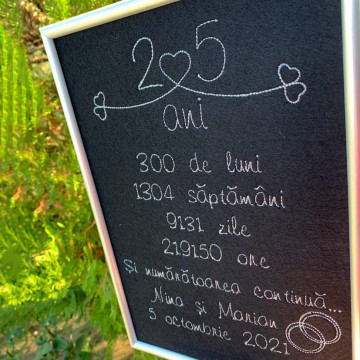 25
ani
300 de luni
1304 săptămâni
9131 zile
219150 ore
Și numărătoarea continuă...
Nina și Marian
5 octombrie 2021